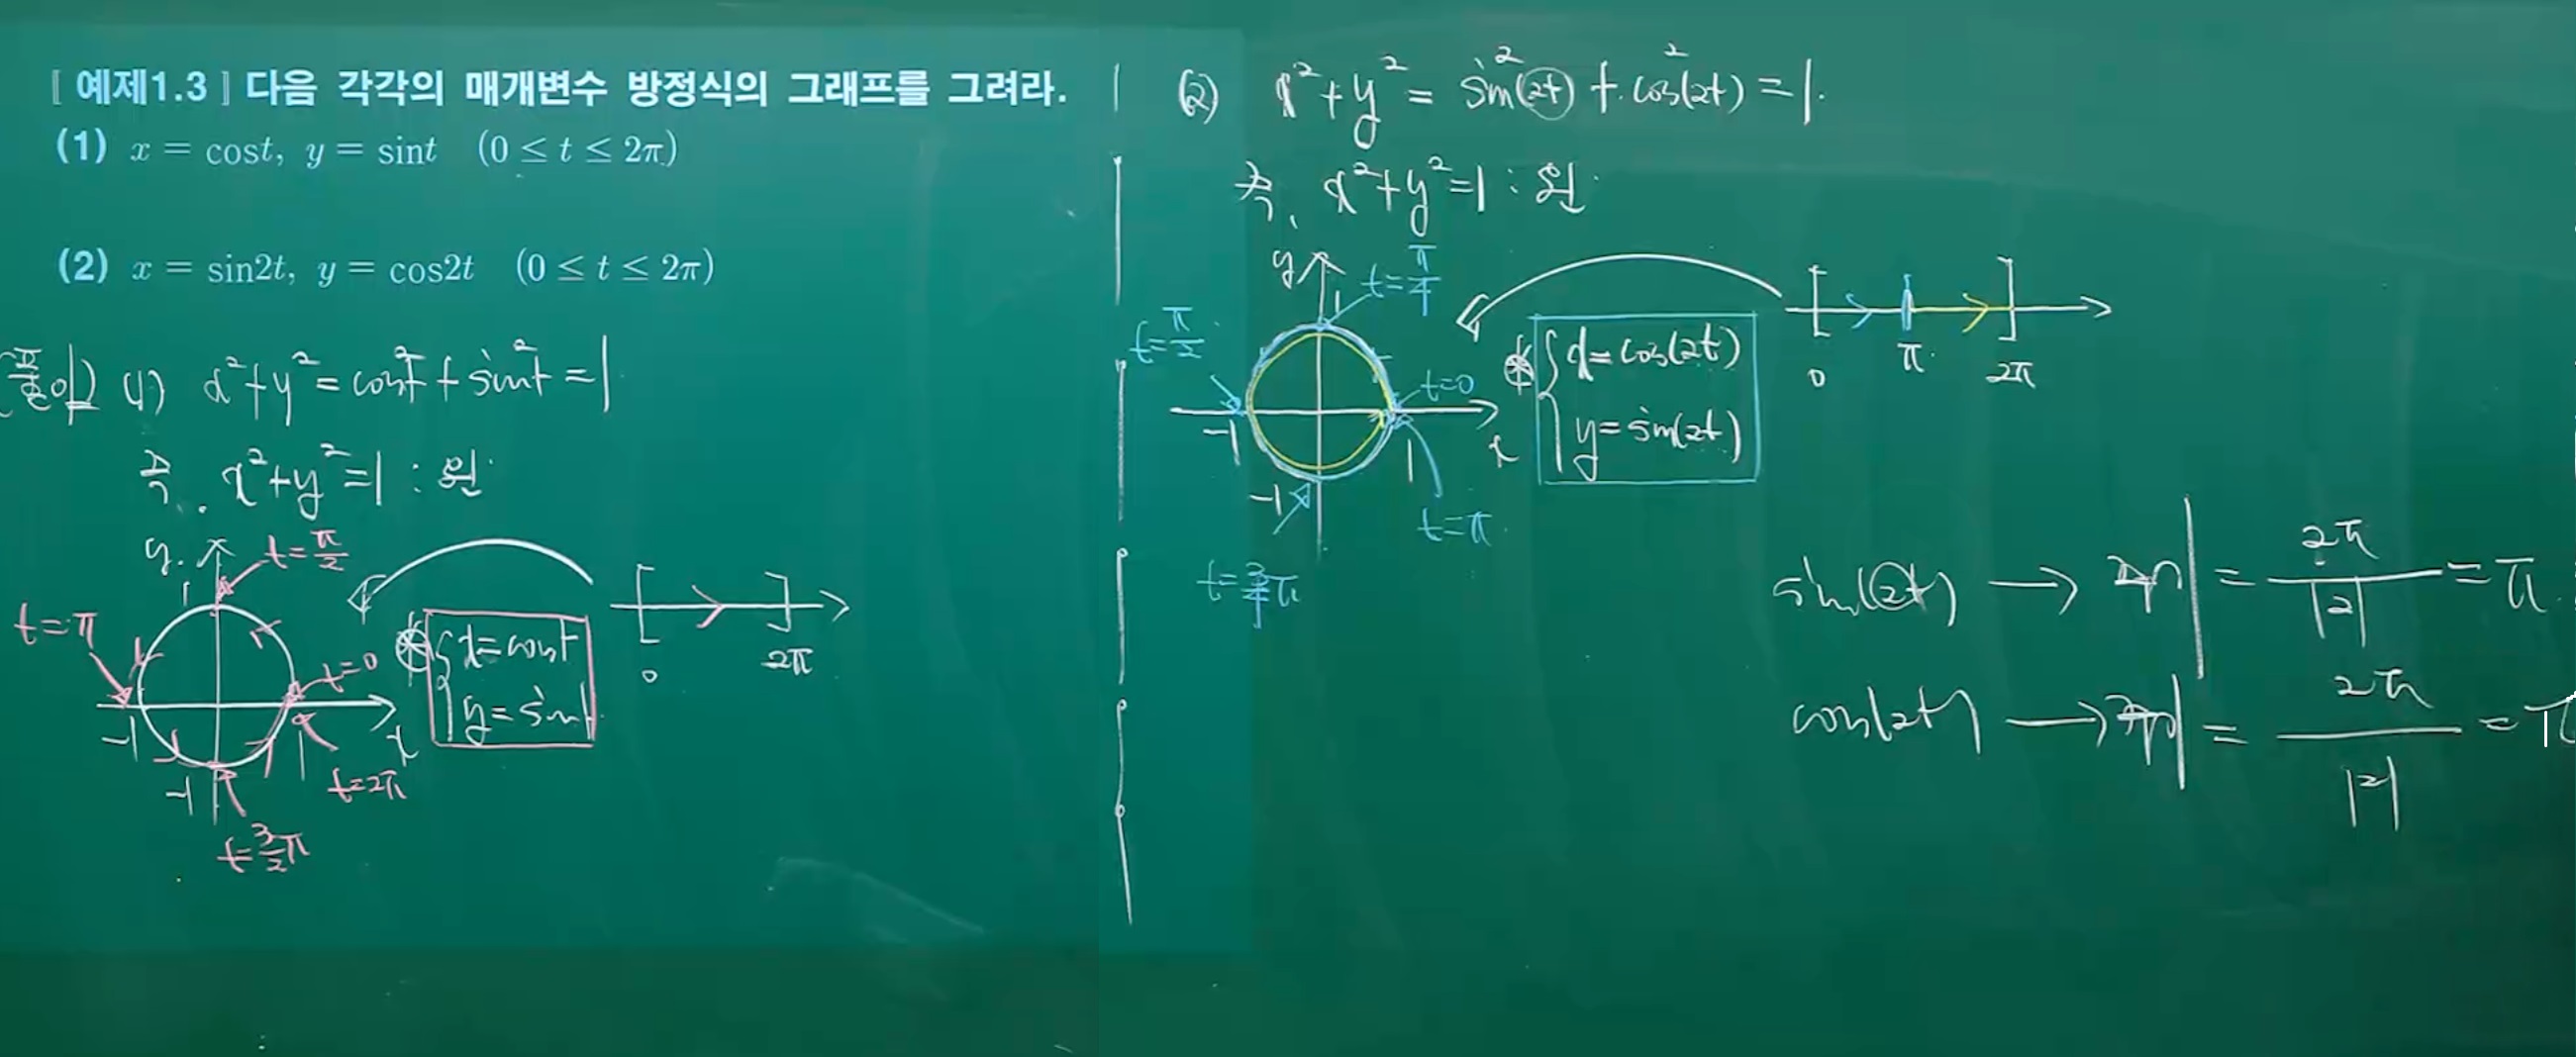 [ 예제1.3 ] 다음 각각의 매개변수 방정식의 그래프를 그려라.
(1) x = cost, y = sint (0 ≤ t ≤ 2π)
(2) x = sin2t, y = cos2t (0 ≤ t ≤ 2π)
(풀이) (1) x²+y² = cos²t + sin²t = 1
즉, x²+y²=1 : 원
y
t=π/2
1
t=π
t=0
-1
1
x
-1
t=2π
t=3/2π
※ { x=cost
y=sint
0
2π
(2) x²+y² = sin²(2t) + cos²(2t) = 1.
즉, x²+y²=1 : 원
y
t=π/4
1
t=π/2
t=0
-1
1
x
-1
t=π
t=3/4π
※ { x=cos(2t)
y=sin(2t)
0
π
2π
sin(2t) → 주기 = 2π/|2| = π
cos(2t) → 주기 = 2π/|2| = π